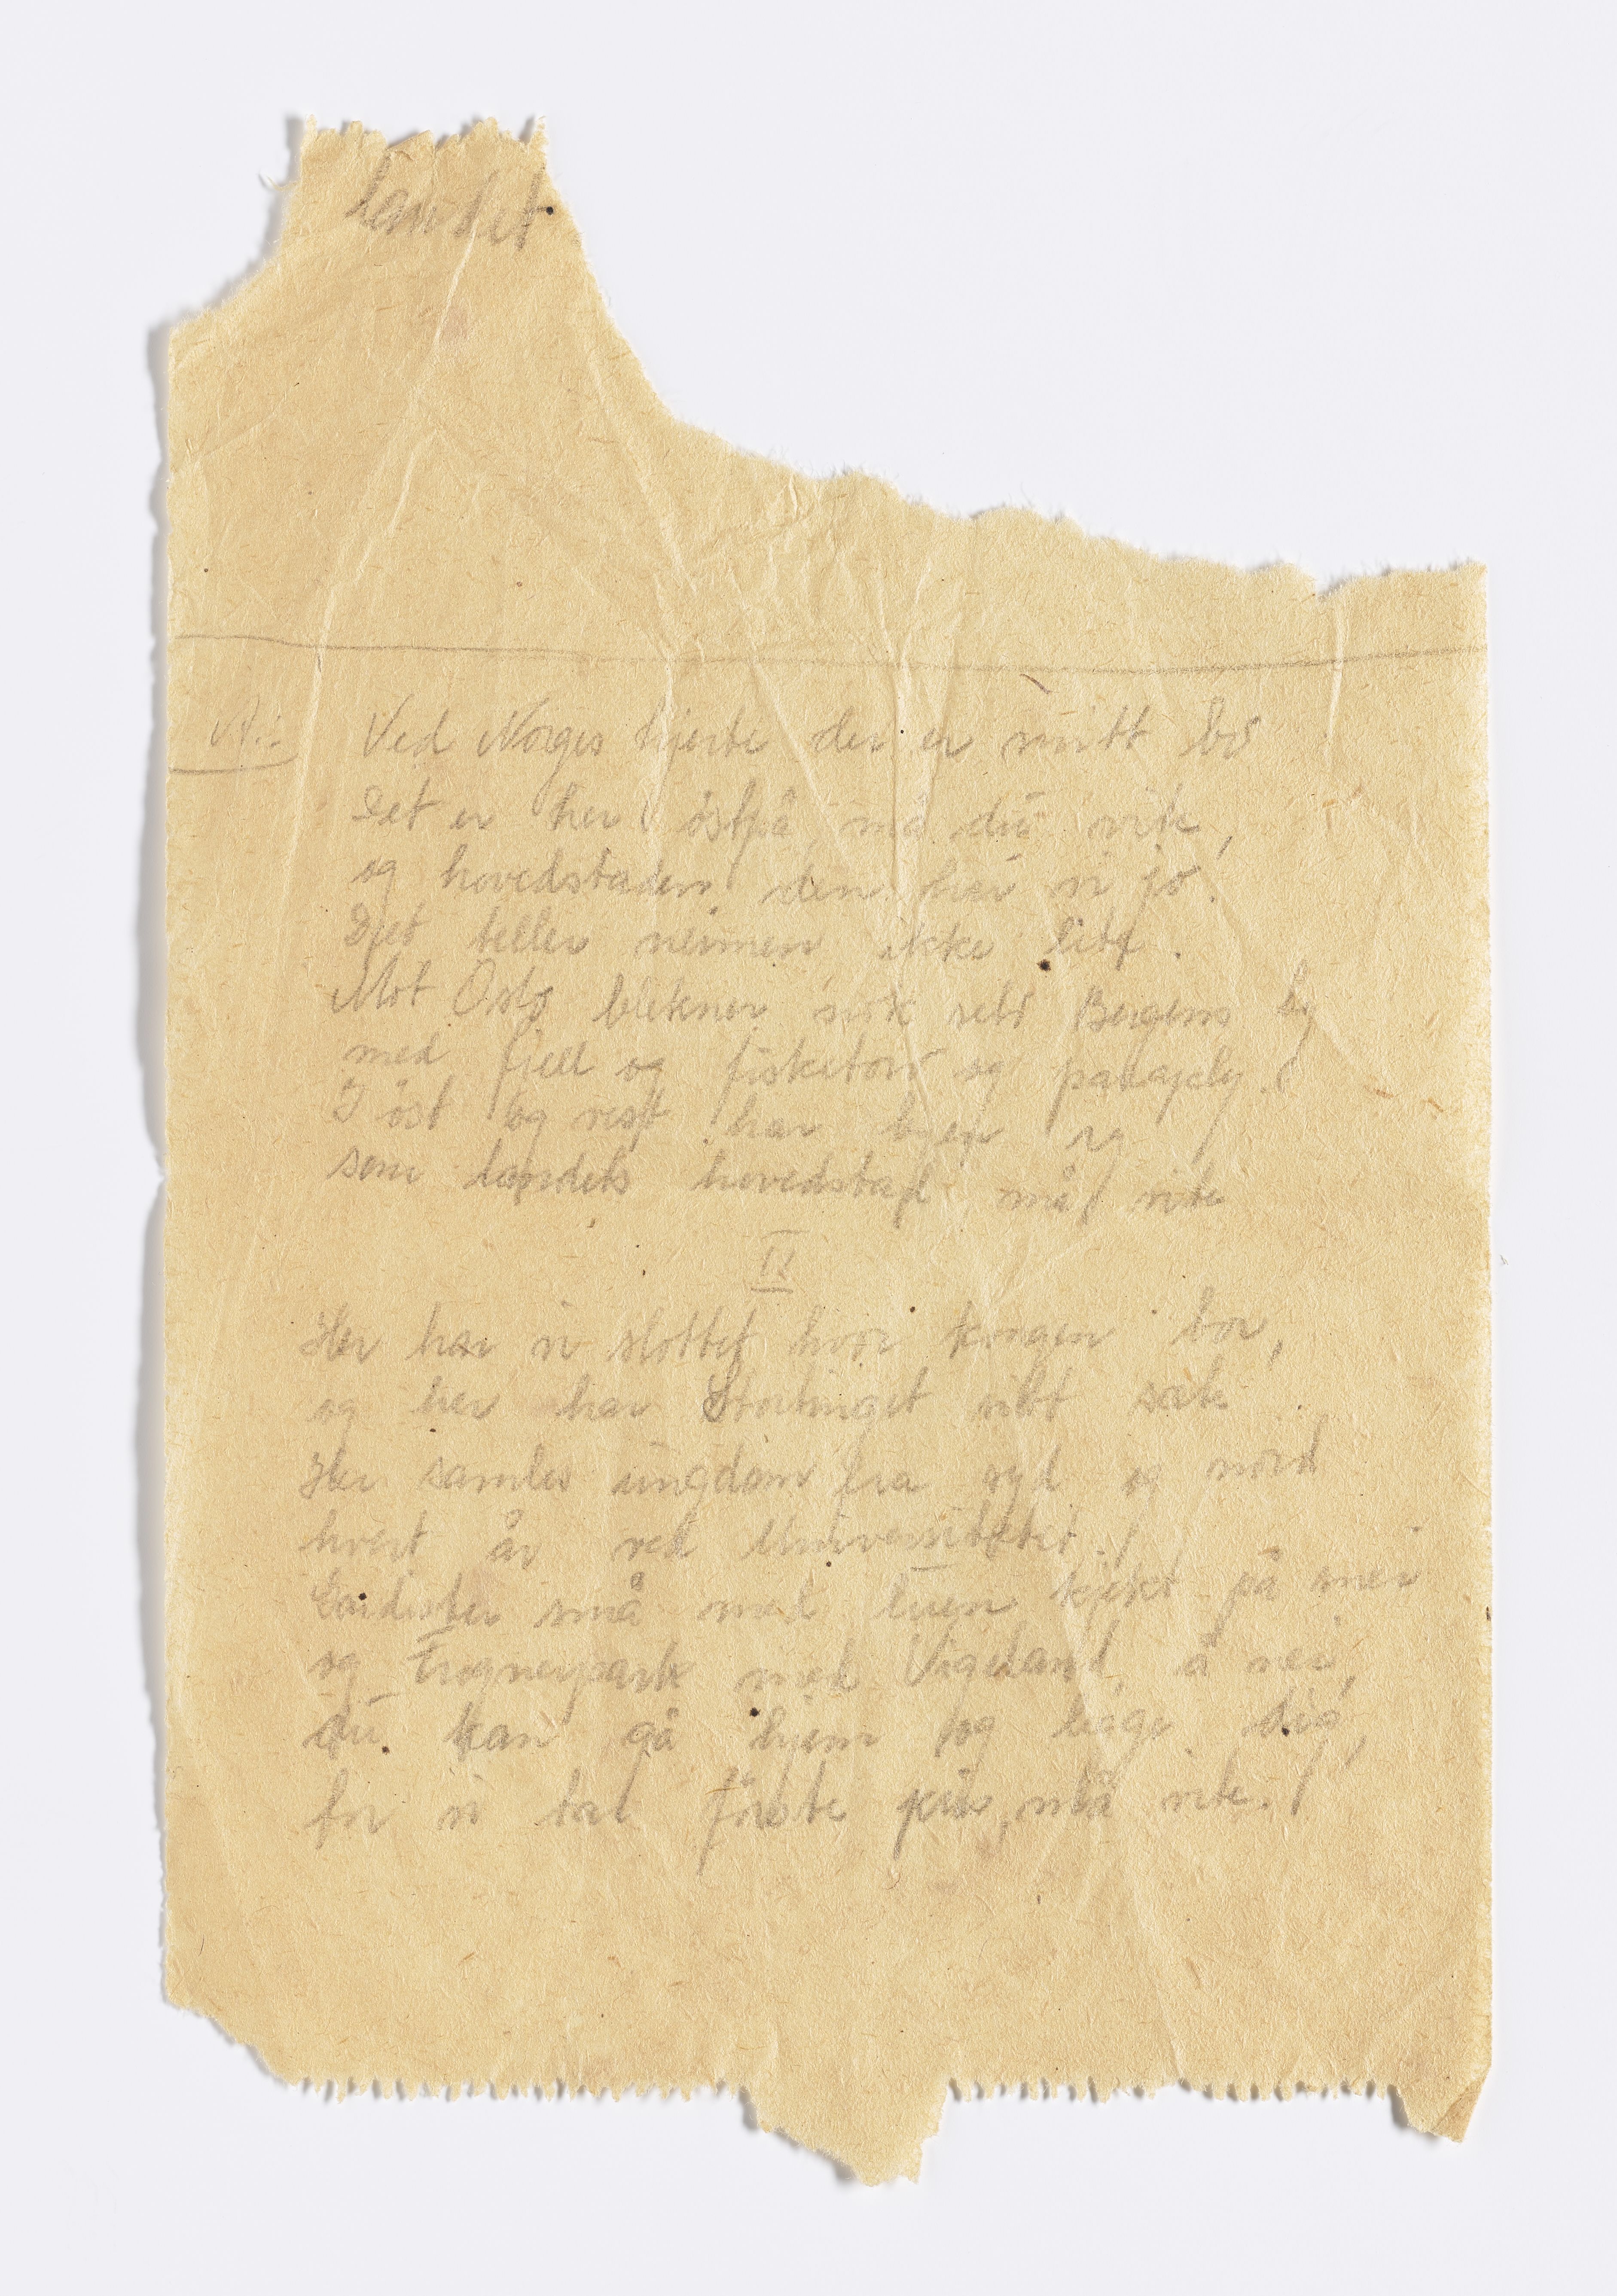 landet
A:
Ved Norges hjerte der er mitt bo
Det er her østpå må du vite,
og hovedstaden den har vi jo.
Det teller neimen ikke lite.
Mot Oslo blekner nok selv Bergens by
med fjell og fisketorv og paraply.
I øst og vest har byen ry
som landets hovedstad må vite
II
Her har vi slottet hvor kongen bor,
og her har Stortinget sitt sete
Her samles ungdom fra syd og nord
hvert år ved Universitetet.
Gardister små med luen kjekt på snei
og Frognerpark med Vigeland, å nei,
du kan gå hjem og legge dig,
for vi tar første pris, må vite.